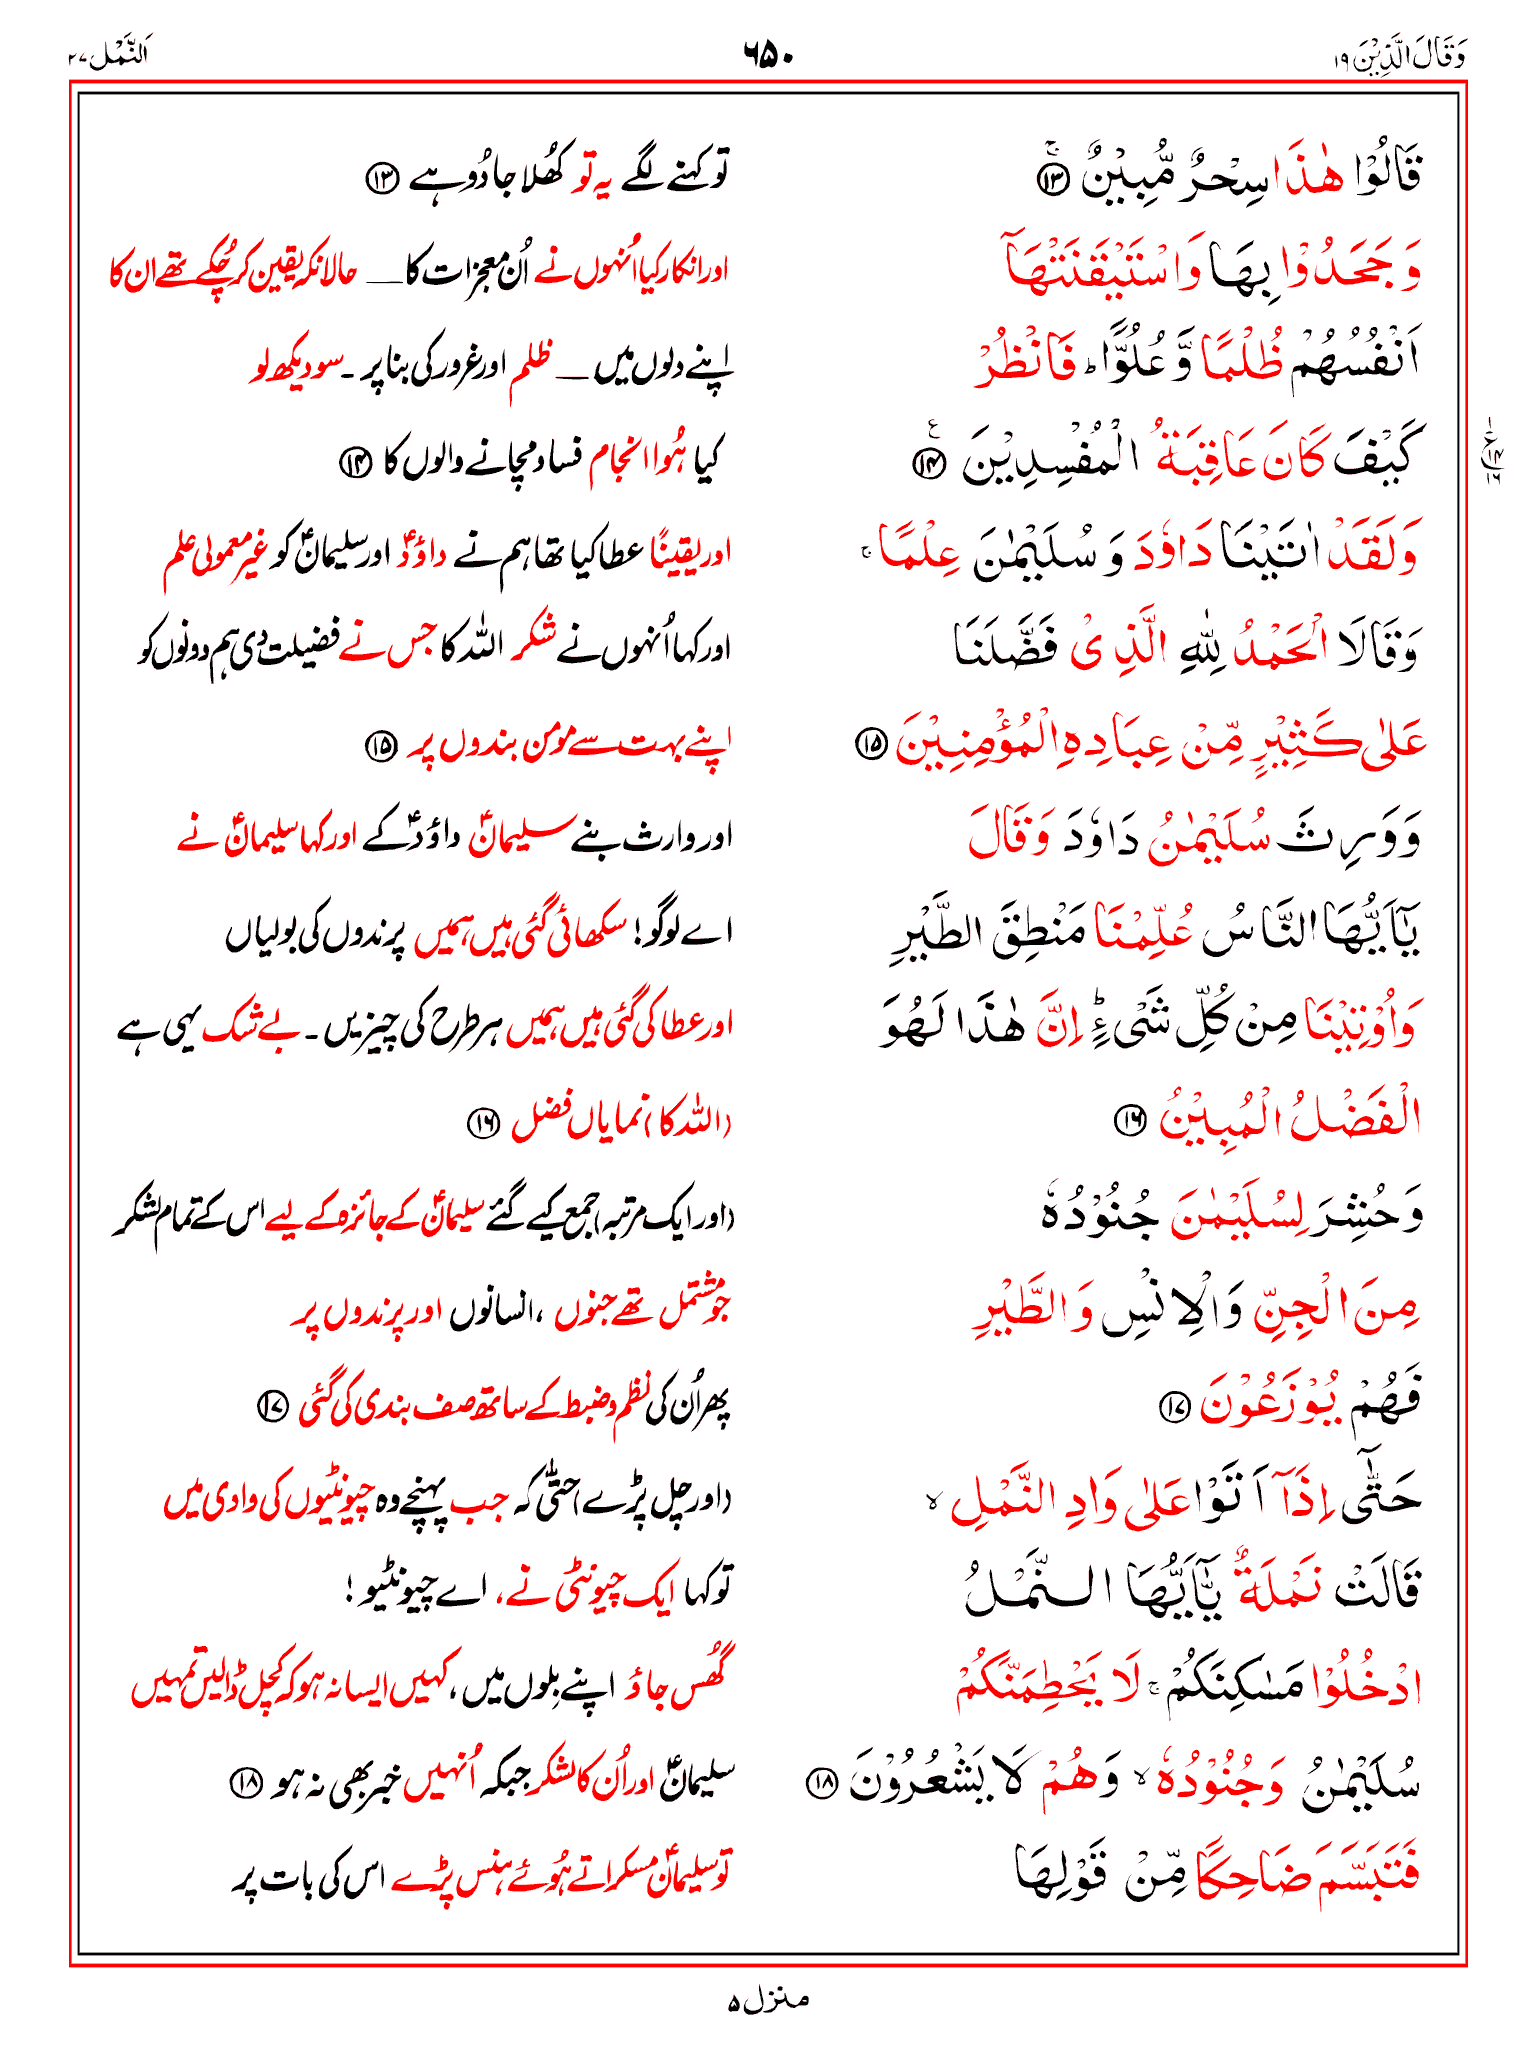 وَقَالَ الَّذِيْنَ ١٩ ۶۵۰ اَلنَّمْل ٢٧
قَالُوْا هٰذَا سِحْرٌ مُّبِيْنٌ ۚ ﴿۱۳﴾ تو کہنے لگے یہ تو کھُلا جادُو ہے ﴿۱۳﴾
وَجَحَدُوْا بِهَا وَاسْتَيْقَنَتْهَاۤ اور انکار کیا اُنہوں نے اُن معجزات کا ــ حالانکہ یقین کر چُکے تھے ان کا
اَنْفُسُهُمْ ظُلْمًا وَّعُلُوًّا ؕ فَانْظُرْ اپنے دلوں میں ــ ظلم اور غرور کی بنا پر ۔ سو دیکھ لو
كَيْفَ كَانَ عَاقِبَةُ الْمُفْسِدِيْنَ ﴿۱۴﴾ ع کیا ہُوا انجام فساد مچانے والوں کا ﴿۱۴﴾
ع ۱۴ ۱۶
وَلَقَدْ اٰتَيْنَا دَاوٗدَ وَسُلَيْمٰنَ عِلْمًا ۚ اور یقینًا عطا کیا تھا ہم نے داؤدؑ اور سلیمانؑ کو غیر معمولی علم
وَقَالَا الْحَمْدُ لِلّٰهِ الَّذِيْ فَضَّلَنَا اور کہا اُنہوں نے شکر اللہ کا جس نے فضیلت دی ہم دونوں کو
عَلٰى كَثِيْرٍ مِّنْ عِبَادِهِ الْمُؤْمِنِيْنَ ﴿۱۵﴾ اپنے بہت سے مومن بندوں پر ﴿۱۵﴾
وَوَرِثَ سُلَيْمٰنُ دَاوٗدَ وَقَالَ اور وارث بنے سلیمانؑ داؤدؑ کے اور کہا سلیمانؑ نے
يٰۤاَيُّهَا النَّاسُ عُلِّمْنَا مَنْطِقَ الطَّيْرِ اے لوگو! سکھائی گئی ہیں ہمیں پرندوں کی بولیاں
وَاُوْتِيْنَا مِنْ كُلِّ شَيْءٍ ؕ اِنَّ هٰذَا لَهُوَ اور عطا کی گئی ہیں ہمیں ہر طرح کی چیزیں ۔ بے شک یہی ہے
الْفَضْلُ الْمُبِيْنُ ﴿۱۶﴾ (اللہ کا) نمایاں فضل ﴿۱۶﴾
وَحُشِرَ لِسُلَيْمٰنَ جُنُوْدُهٗ (اور ایک مرتبہ) جمع کیے گئے سلیمانؑ کے جائزہ کے لیے اس کے تمام لشکر
مِنَ الْجِنِّ وَالْاِنْسِ وَالطَّيْرِ جو مشتمل تھے جنوں ،انسانوں اور پرندوں پر
فَهُمْ يُوْزَعُوْنَ ﴿۱۷﴾ پھر اُن کی نظم و ضبط کے ساتھ صف بندی کی گئی ﴿۱۷﴾
حَتّٰۤى اِذَاۤ اَتَوْا عَلٰى وَادِ النَّمْلِ ۙ (اور چل پڑے) حتّٰی کہ جب پہنچے وہ چیونٹیوں کی وادی میں
قَالَتْ نَمْلَةٌ يّٰۤاَيُّهَا النَّمْلُ تو کہا ایک چیونٹی نے، اے چیونٹیو!
ادْخُلُوْا مَسٰكِنَكُمْ ۚ لَا يَحْطِمَنَّكُمْ گھُس جاؤ اپنے بِلوں میں ، کہیں ایسا نہ ہو کہ کچل ڈالیں تمہیں
سُلَيْمٰنُ وَجُنُوْدُهٗ ۙ وَهُمْ لَا يَشْعُرُوْنَ ﴿۱۸﴾ سلیمانؑ اور اُن کا لشکر جبکہ اُنہیں خبر بھی نہ ہو ﴿۱۸﴾
فَتَبَسَّمَ ضَاحِكًا مِّنْ قَوْلِهَا تو سلیمانؑ مسکراتے ہُوئے ہنس پڑے اس کی بات پر
منزل ۵